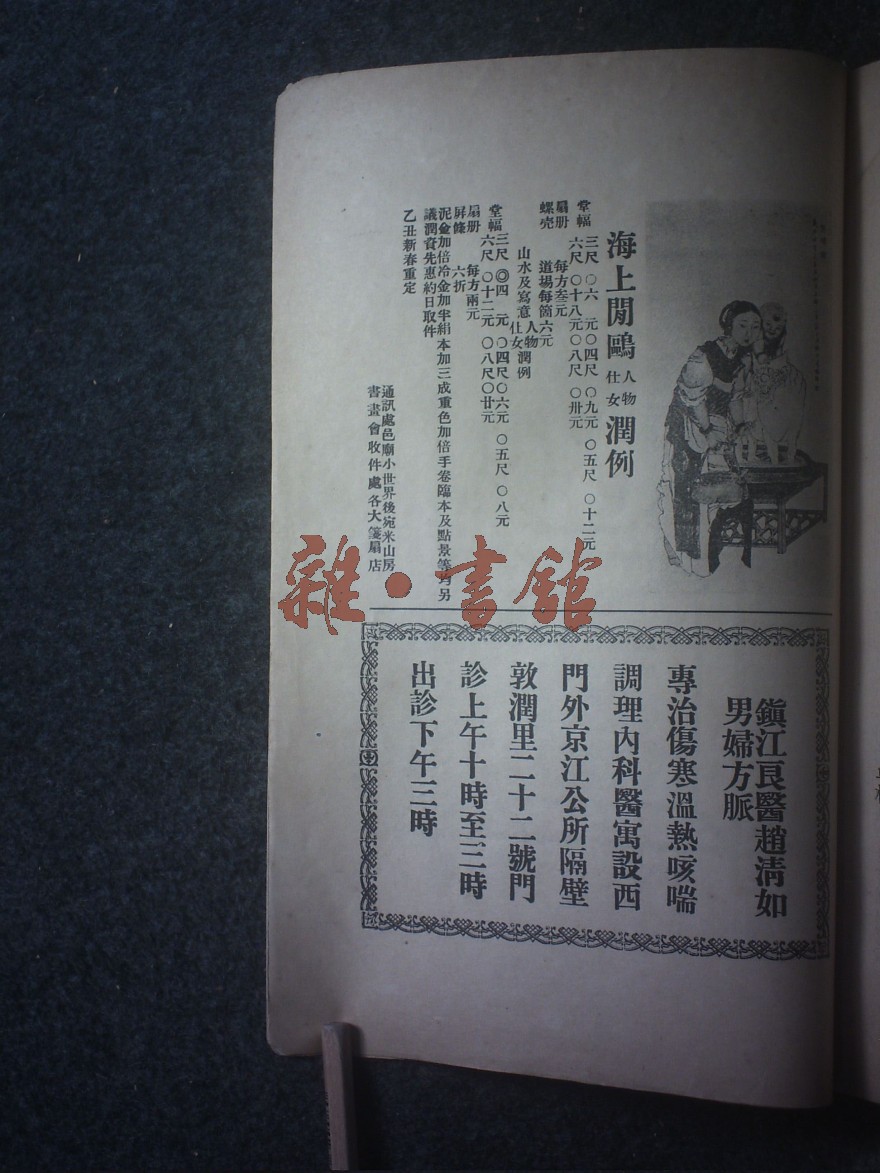 海上閒鷗人物仕女潤例
堂幅 三尺〇六元〇四尺〇九元〇五尺〇十二元
六尺〇十八元〇八尺〇卅元
扇册 每方叁元
螺壳 道場每箇六元
山水及寫意人物仕女潤例
堂幅 三尺◎四元〇四尺〇六元〇五尺〇八元
六尺〇十二元〇八尺〇廿元
扇册 每方兩元
屏條 六折
泥金加倍冷金加半絹本加三成重色加倍手卷臨本及點景等均另
議潤資先惠約日取件
乙丑新春重定
通訊處邑廟小世界後宛米山房
書畫會收件處各大箋扇店
鎮江良醫趙淸如
男婦方脈
專治傷寒溫熱咳喘
調理內科醫寓設西
門外京江公所隔壁
敦潤里二十二號門
診上午十時至三時
出診下午三時
雜·書館